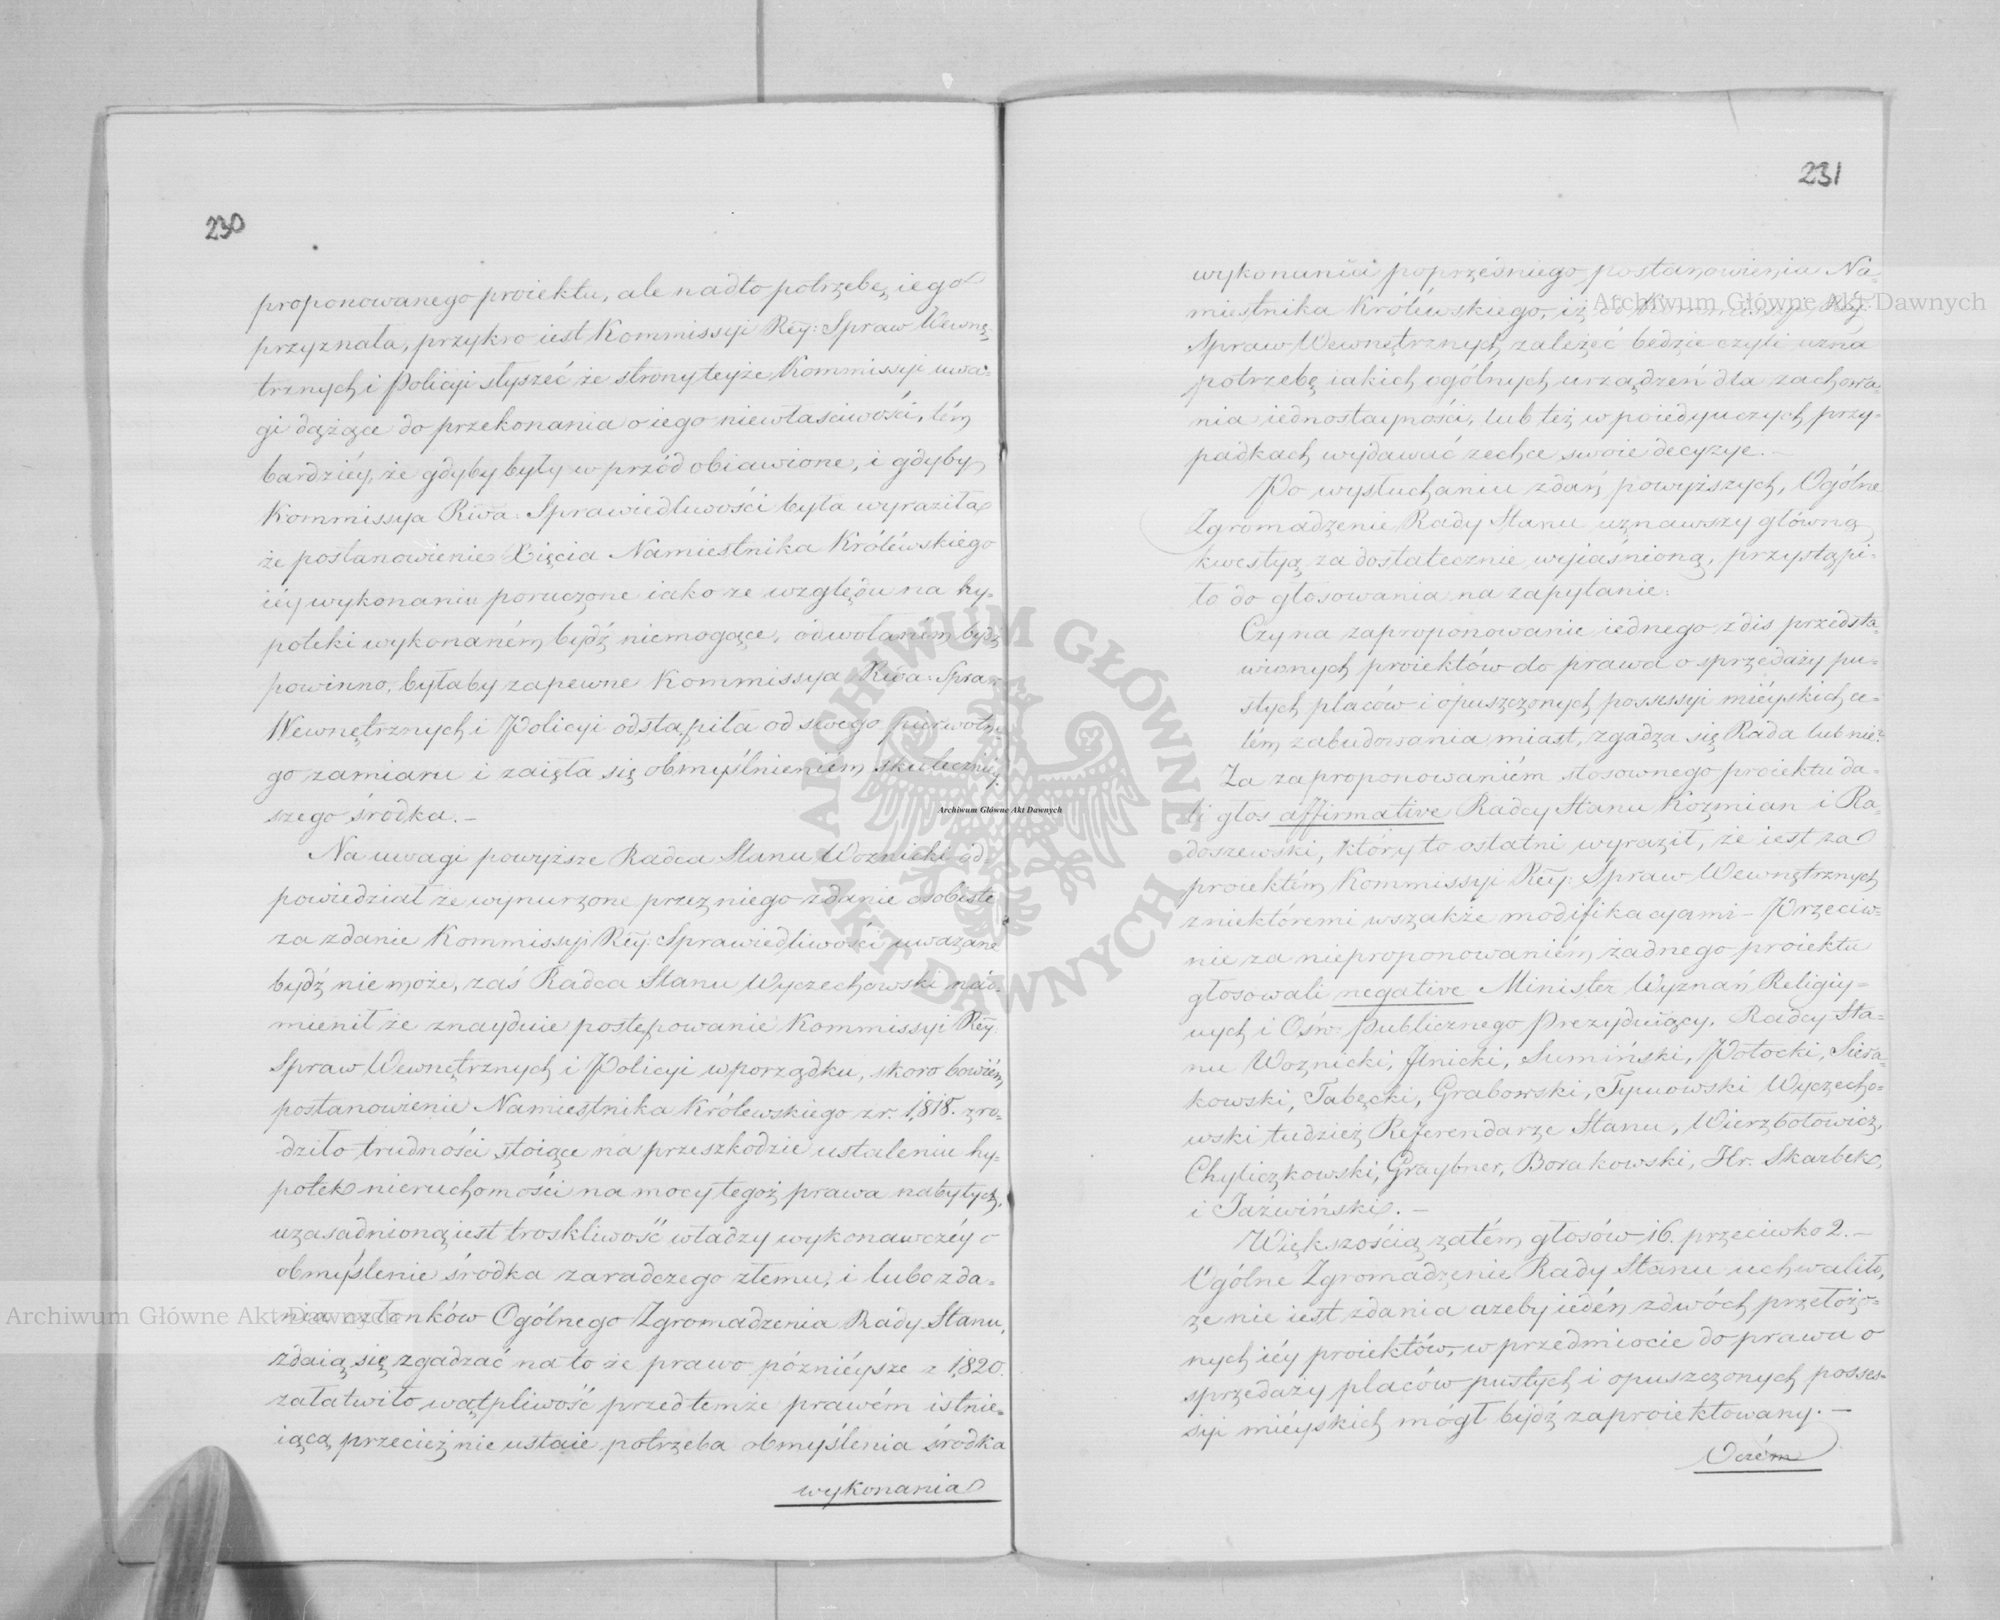 230
proponowanego proiektu, ale nadto potrzebę iego
przyznała, przykro iest Kommissyi Rey: Spraw Wewnę-
trznych i Policyi słyszeć że strony teyże Kommissyi uwa-
gi dążące do przekonania o iego niewłaściwości, tém
bardziéy, że gdyby były w przód obiawione, i gdyby
Kommissya Rwa: Sprawiedliwości była wyraziła
że postanowienie Xięcia Namiestnika Królewskiego
iéy wykonaniu poruczone iako ze względu na hy-
poteki wykonaném bydź niemogące, odwołaném bydź
powinno, byłaby zapewne Kommissya Rwa: Spraw
Wewnętrznych i Policyi odstąpiła od swego pierwotne-
go zamiaru i zaięła się obmyślnieniem skuteczniey-
szego środka. –
Na uwagi powyższe Radca Stanu Woznicki od-
powiedział że wynurzone przez niego zdanie osobiste
za zdanie Kommissyi Rey: Sprawiedliwości uważane
bydź nie może, zaś Radca Stanu Wyczechowski nad-
mienił że znayduie postępowanie Kommissyi Rey:
Spraw Wewnętrznych i Policyi w porządku, skoro bowiém
postanowienie Namiestnika Królewskiego z r. 1818. zro-
dziło trudności stoiące na przeszkodzie ustaleniu hy-
potek nieruchomości na mocy tegoż prawa nabytych,
uzasadnioną iest troskliwość władzy wykonawczéy o
obmyślenie środka zaradczego złemu, i lubo zda-
nia członków Ogólnego Zgromadzenia Rady Stanu,
zdaią się zgadzać na to że prawo późniéysze z 1820.
załatwiło wątpliwość przed temże prawém istnie-
iącą przecież nie ustaie potrzeba obmyślenia środka
wykonania
231
wykonania poprzéśniego postanowienia Na-
miestnika Królewskiego, iż od Kommissyi Rey:
Spraw Wewnętrznych zależéć będzie czyli uzna
potrzebę iakich ogólnych urządzeń dla zachowa-
nia iednostayności, lub też w poiedynczych przy-
padkach wydawać zechce swoie decyzye. –
Po wysłuchaniu zdań powyższych, Ogólne
Zgromadzenie Rady Stanu uznawszy główną
kwestyą za dostatecznie wyiaśnioną, przystąpi-
ło do głosowania na zapytanie:
Czy na zaproponowanie iednego z dis przedsta-
wionych proiektów do prawa o sprzedaży pu-
stych placów i opuszczonych possessyi miéyskich ce-
lém zabudowania miast, zgadza się Rada lub nie?
Za zaproponowaniém stosownego proiektu da-
li głos affirmative Radcy Stanu Koźmian i Ra-
doszewski, który to ostatni wyraził, że iest za
proiektém Kommissyi Rey: Spraw Wewnętrznych
z niektóremi wszakże modyfikacyami – Przeciw-
nie za nieproponowaniém żadnego proiektu
głosowali negative Minister Wyznań Religiy-
nych i Ośw: Publicznego Prezyduiący, Radcy Sta-
nu Woznicki, Jlnicki, Sumiński, Potocki, Siera-
kowski, Tabęcki, Grabowski, Tymowski Wyczecho-
wski tudzież Referendarze Stanu, Wierzbołowicz,
Chyliczkowski, Graybner, Borakowski, Hr. Skarbek,
i Jaźwiński. –
Większością zatém głosów 16. przeciwko 2. –
Ogólne Zgromadzenie Rady Stanu uchwaliło,
że nie iest zdania azeby iedén z dwóch przełożo-
nych iéy proiektów, w przedmiocie do prawa o
sprzedaży placów pustych i opuszczonych posses-
syi miéyskich mógł bydź zaproiektowany. –
Oczém
Archiwum Główne Akt Dawnych
Archiwum Główne Akt Dawnych
Archiwum Główne Akt Dawnych
ARCHIWUM GŁÓWNE AKT DAWNYCH